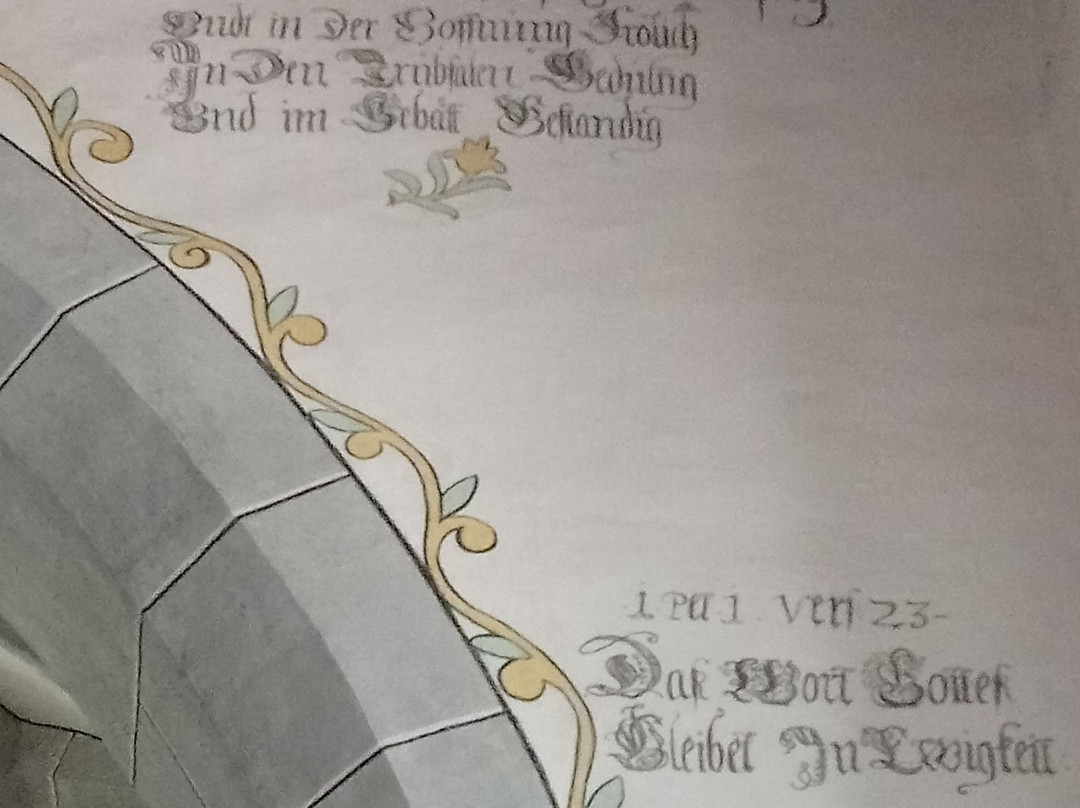 Vndt in Der Hoffnung Frölich
In Den Trübsalen Gedultig
Vnd im Gebätt Bestandig
1 Pet 1 Vers 23-
Das Wort Gottes
Bleibet In Ewigkeit